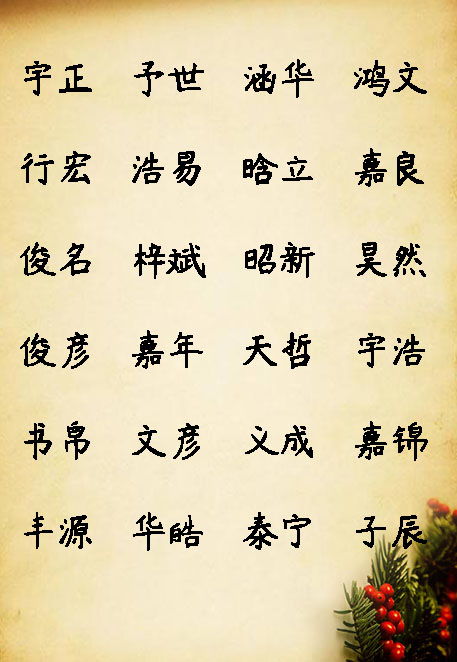 宇正 予世 涵华 鸿文
行宏 浩易 晗立 嘉良
俊名 梓斌 昭新 昊然
俊彦 嘉年 天哲 宇浩
书帛 文彦 义成 嘉锦
丰源 华皓 泰宁 子辰